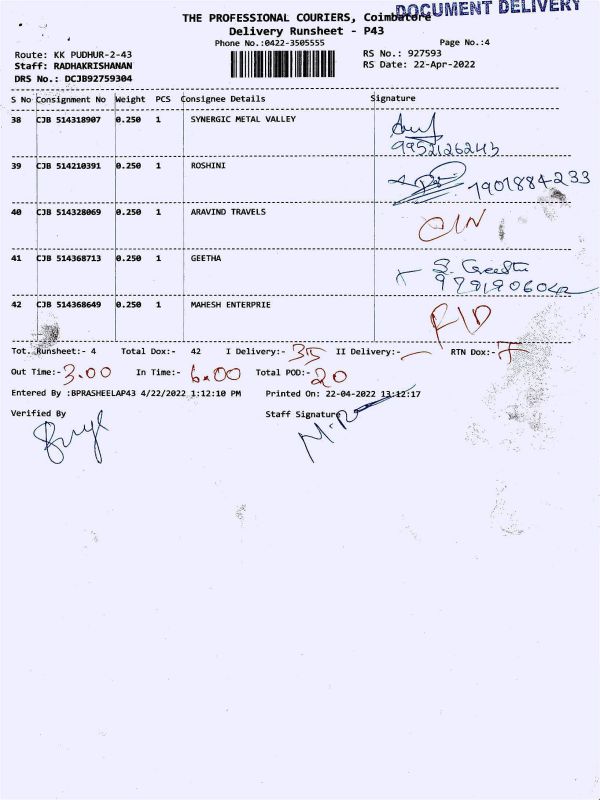 DOCUMENT DELIVERY
THE PROFESSIONAL COURIERS, Coimbatore
Delivery Runsheet - P43
Phone No.:0422-3505555
Page No.:4
Route: KK PUDHUR-2-43
RS No.: 927593
Staff: RADHAKRISHANAN
RS Date: 22-Apr-2022
DRS No.: DCJB92759304
S No Consignment No Weight PCS Consignee Details Signature
38 CJB 514318907 0.250 1 SYNERGIC METAL VALLEY
9952126243
39 CJB 514210391 0.250 1 ROSHINI
7901884233
40 CJB 514328069 0.250 1 ARAVIND TRAVELS
41 CJB 514368713 0.250 1 GEETHA S. Geetha
9791906042
42 CJB 514368649 0.250 1 MAHESH ENTERPRIE
Tot. Runsheet:- 4 Total Dox:- 42 I Delivery:- 35 II Delivery:- — RTN Dox:- 7
Out Time:- 3.00 In Time:- 6.00 Total POD:- 20
Entered By :BPRASHEELAP43 4/22/2022 1:12:10 PM Printed On: 22-04-2022 13:12:17
Verified By Staff Signature